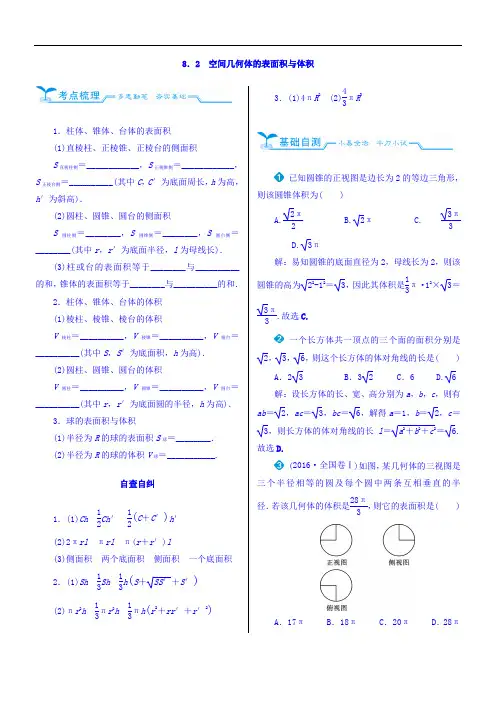 8．2 空间几何体的表面积与体积
考点梳理
1．柱体、锥体、台体的表面积
(1)直棱柱、正棱锥、正棱台的侧面积
S直棱柱侧＝____________，S正棱锥侧＝____________，
S正棱台侧＝__________(其中C，C′为底面周长，h为高，
h′为斜高)．
(2)圆柱、圆锥、圆台的侧面积
S圆柱侧＝________，S圆锥侧＝________，S圆台侧＝
________(其中r，r′为底面半径，l为母线长)．
(3)柱或台的表面积等于________与__________
的和，锥体的表面积等于________与__________的和．
2．柱体、锥体、台体的体积
(1)棱柱、棱锥、棱台的体积
V棱柱＝__________，V棱锥＝__________，V棱台＝
__________(其中S，S′为底面积，h为高)．
(2)圆柱、圆锥、圆台的体积
V圆柱＝__________，V圆锥＝__________，V圆台＝
__________(其中r，r′为底面圆的半径，h为高)．
3．球的表面积与体积
(1)半径为R的球的表面积S球＝________．
(2)半径为R的球的体积V球＝___________．
自查自纠
1．(1)Ch 1/2Ch′ 1/2(C＋C′)h′
(2)2πrl πrl π(r＋r′)l
(3)侧面积 两个底面积 侧面积 一个底面积
2．(1)Sh 1/3Sh 1/3h(S＋√SS′＋S′)
(2)πr²h 1/3πr²h 1/3πh(r²＋rr′＋r′²)
3．(1)4πR² (2)4/3πR³
基础自测
1 已知圆锥的正视图是边长为2的等边三角形，
则该圆锥体积为( )
A.√2π/2 B.√2π C.√3π/3
D.√3π
解：易知圆锥的底面直径为2，母线长为2，则该
圆锥的高为√(2²-1²)＝√3，因此其体积是1/3π·1²×√3＝
√3π/3.故选C.
2 一个长方体共一顶点的三个面的面积分别是
√2，√3，√6，则这个长方体的体对角线的长是( )
A．2√3 B．3√2 C．6 D.√6
解：设长方体的长、宽、高分别为a，b，c，则有
ab＝√2，ac＝√3，bc＝√6，解得a＝1，b＝√2，c＝
√3，则长方体的体对角线的长l＝√(a²＋b²＋c²)＝√6.
故选D.
3 (2016·全国卷Ⅰ)如图，某几何体的三视图是
三个半径相等的圆及每个圆中两条互相垂直的半
径．若该几何体的体积是28π/3，则它的表面积是( )
正视图 侧视图
俯视图
A．17π B．18π C．20π D．28π